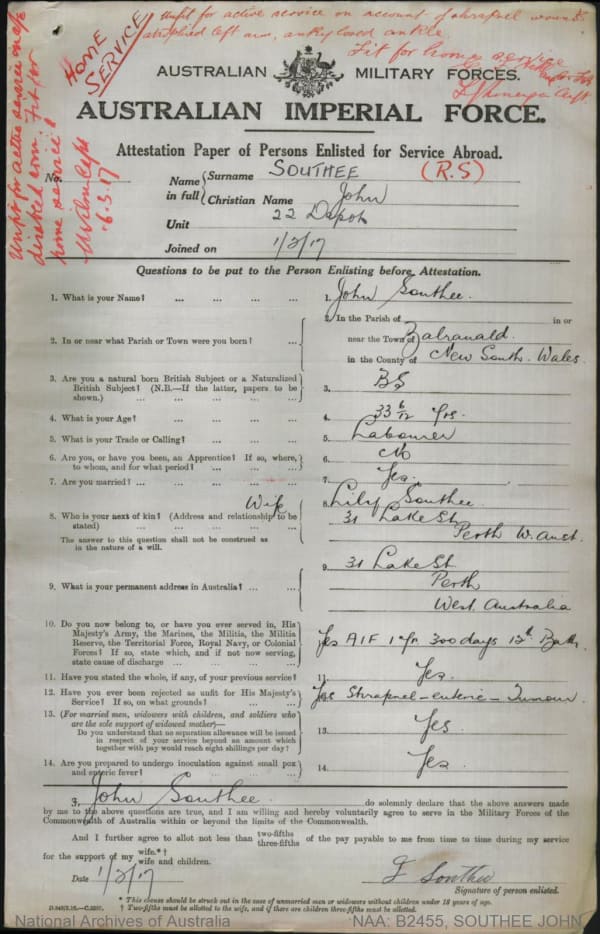 Unfit for active service on account of shrapnel wounds
left arm, ankylosed ankle.
Fit for home service
HOME
SERVICE
Unfit for active service
Fit for
home service
6.3.17
AUSTRALIAN MILITARY FORCES.
AUSTRALIAN IMPERIAL FORCE.
Attestation Paper of Persons Enlisted for Service Abroad.
No.
Name in full { Surname SOUTHEE (R.S)
Christian Name John
Unit 22 Depot
Joined on 1/3/17
Questions to be put to the Person Enlisting before Attestation.
1. What is your Name? ... ... ... ... 1. John Southee.
2. In or near what Parish or Town were you born? ... 2. In the Parish of in or
near the Town of Balranald.
in the County of New South Wales
3. Are you a natural born British Subject or a Naturalized
British Subject? (N.B.—If the latter, papers to be
shown.) ... ... ... ... ... 3. BS
4. What is your Age? ... ... ... ... 4. 33 6/12 Yrs.
5. What is your Trade or Calling? ... ... ... 5. Labourer
6. Are you, or have you been, an Apprentice? If so, where,
to whom, and for what period? ... ... ... 6. No
7. Are you married? ... ... ... ... ... 7. Yes.
8. Who is your next of kin? (Address and relationship to be
stated) ... ... ... ... ... Wife
The answer to this question shall not be construed as
in the nature of a will.
8. Lily Southee.
31 Lake St.
Perth W. Aust.
9. What is your permanent address in Australia? ... ... 9. 31 Lake St.
Perth
West Australia
10. Do you now belong to, or have you ever served in, His
Majesty's Army, the Marines, the Militia, the Militia
Reserve, the Territorial Force, Royal Navy, or Colonial
Forces? If so, state which, and if not now serving,
state cause of discharge ... ... ... ...
Yes AIF 1 Yr 300 days Battn.
11. Have you stated the whole, if any, of your previous service? 11. Yes.
12. Have you ever been rejected as unfit for His Majesty's
Service? If so, on what grounds? ... ... ... Yes Shrapnel-enteric-Tumour
13. (For married men, widowers with children, and soldiers who
are the sole support of widowed mother)—
Do you understand that no separation allowance will be issued
in respect of your service beyond an amount which
together with pay would reach eight shillings per day? 13. Yes
14. Are you prepared to undergo inoculation against small pox
and enteric fever? ... ... ... ... 14. Yes
I, John Southee. do solemnly declare that the above answers made
by me to the above questions are true, and I am willing and hereby voluntarily agree to serve in the Military Forces of the
Commonwealth of Australia within or beyond the limits of the Commonwealth.
And I further agree to allot not less than two-fifths three-fifths of the pay payable to me from time to time during my service
for the support of my wife.*† wife and children.
Date 1/3/17
J Southee
Signature of person enlisted.
* This clause should be struck out in the case of unmarried men or widowers without children under 18 years of age.
† Two-fifths must be allotted to the wife, and if there are children three-fifths must be allotted.
National Archives of Australia
NAA: B2455, SOUTHEE JOHN